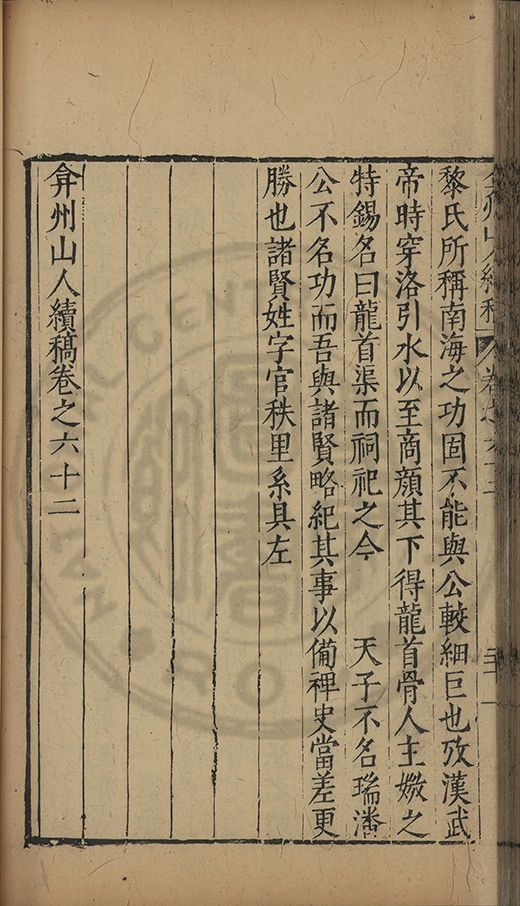 黎氏所稱南海之功固不能與公較細巨也攷漢武
帝時穿洛引水以至商顏其下得龍首骨人主媺之
特錫名曰龍首渠而祠祀之今　天子不名瑞潘
公不名功而吾與諸賢略紀其事以備稗史當差更
勝也諸賢姓字官秩里系具左
弇州山人續稿卷之六十二